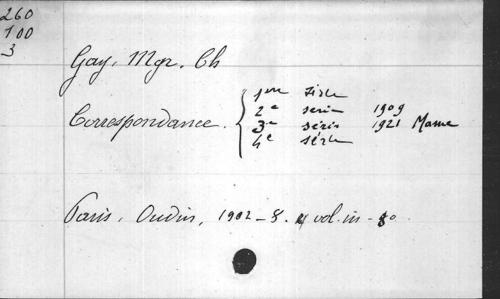 260
100
3
Gay, Mgr. Ch
Correspondance.
1ère série
2e série 1909
3e série 1921 Mame
4e série
Paris, Oudin, 1902-8. 4 vol. in-8o.